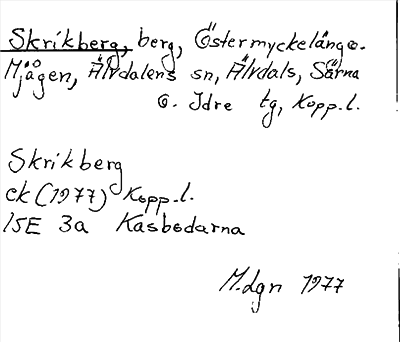 Skrikberg, berg, Östermyckelång o.
Mjågen, Älvdalens sn, Älvdals, Särna
o. Idre tg, Kopp.l.
Skrikberg
ek (1977) Kopp.l.
15E 3a Kasbodarna
M.dgn 1977